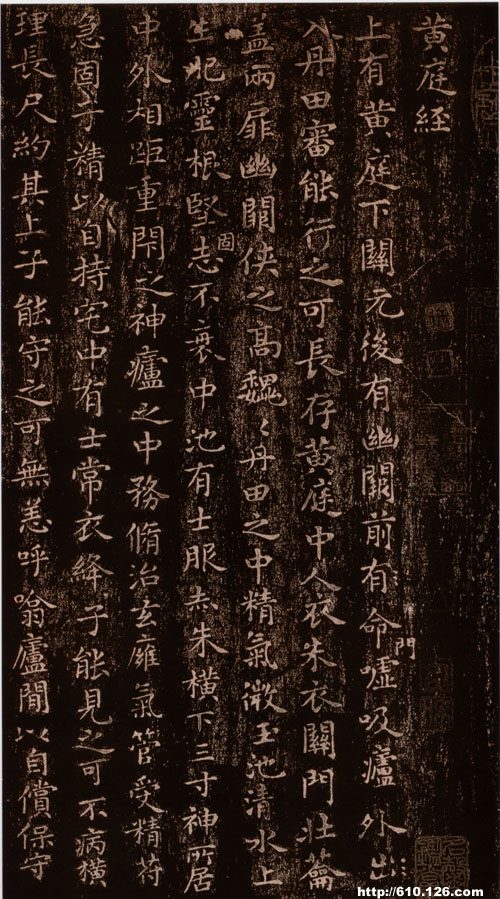 黄庭經
上有黄庭下關元後有幽闕前有命門噓吸廬外出
入丹田審能行之可長存黄庭中人衣朱衣關門壯籥
蓋兩扉幽闕俠之高魏〻丹田之中精氣微玉池清水上
生肥靈根堅固志不衰中池有士服赤朱横下三寸神所居
中外相距重閇之神廬之中務脩治玄癰氣管受精符
急固子精以自持宅中有士常衣絳子能見之可不病横
理長尺約其上子能守之可無恙呼噏廬間以自償保守
http://610.126.com